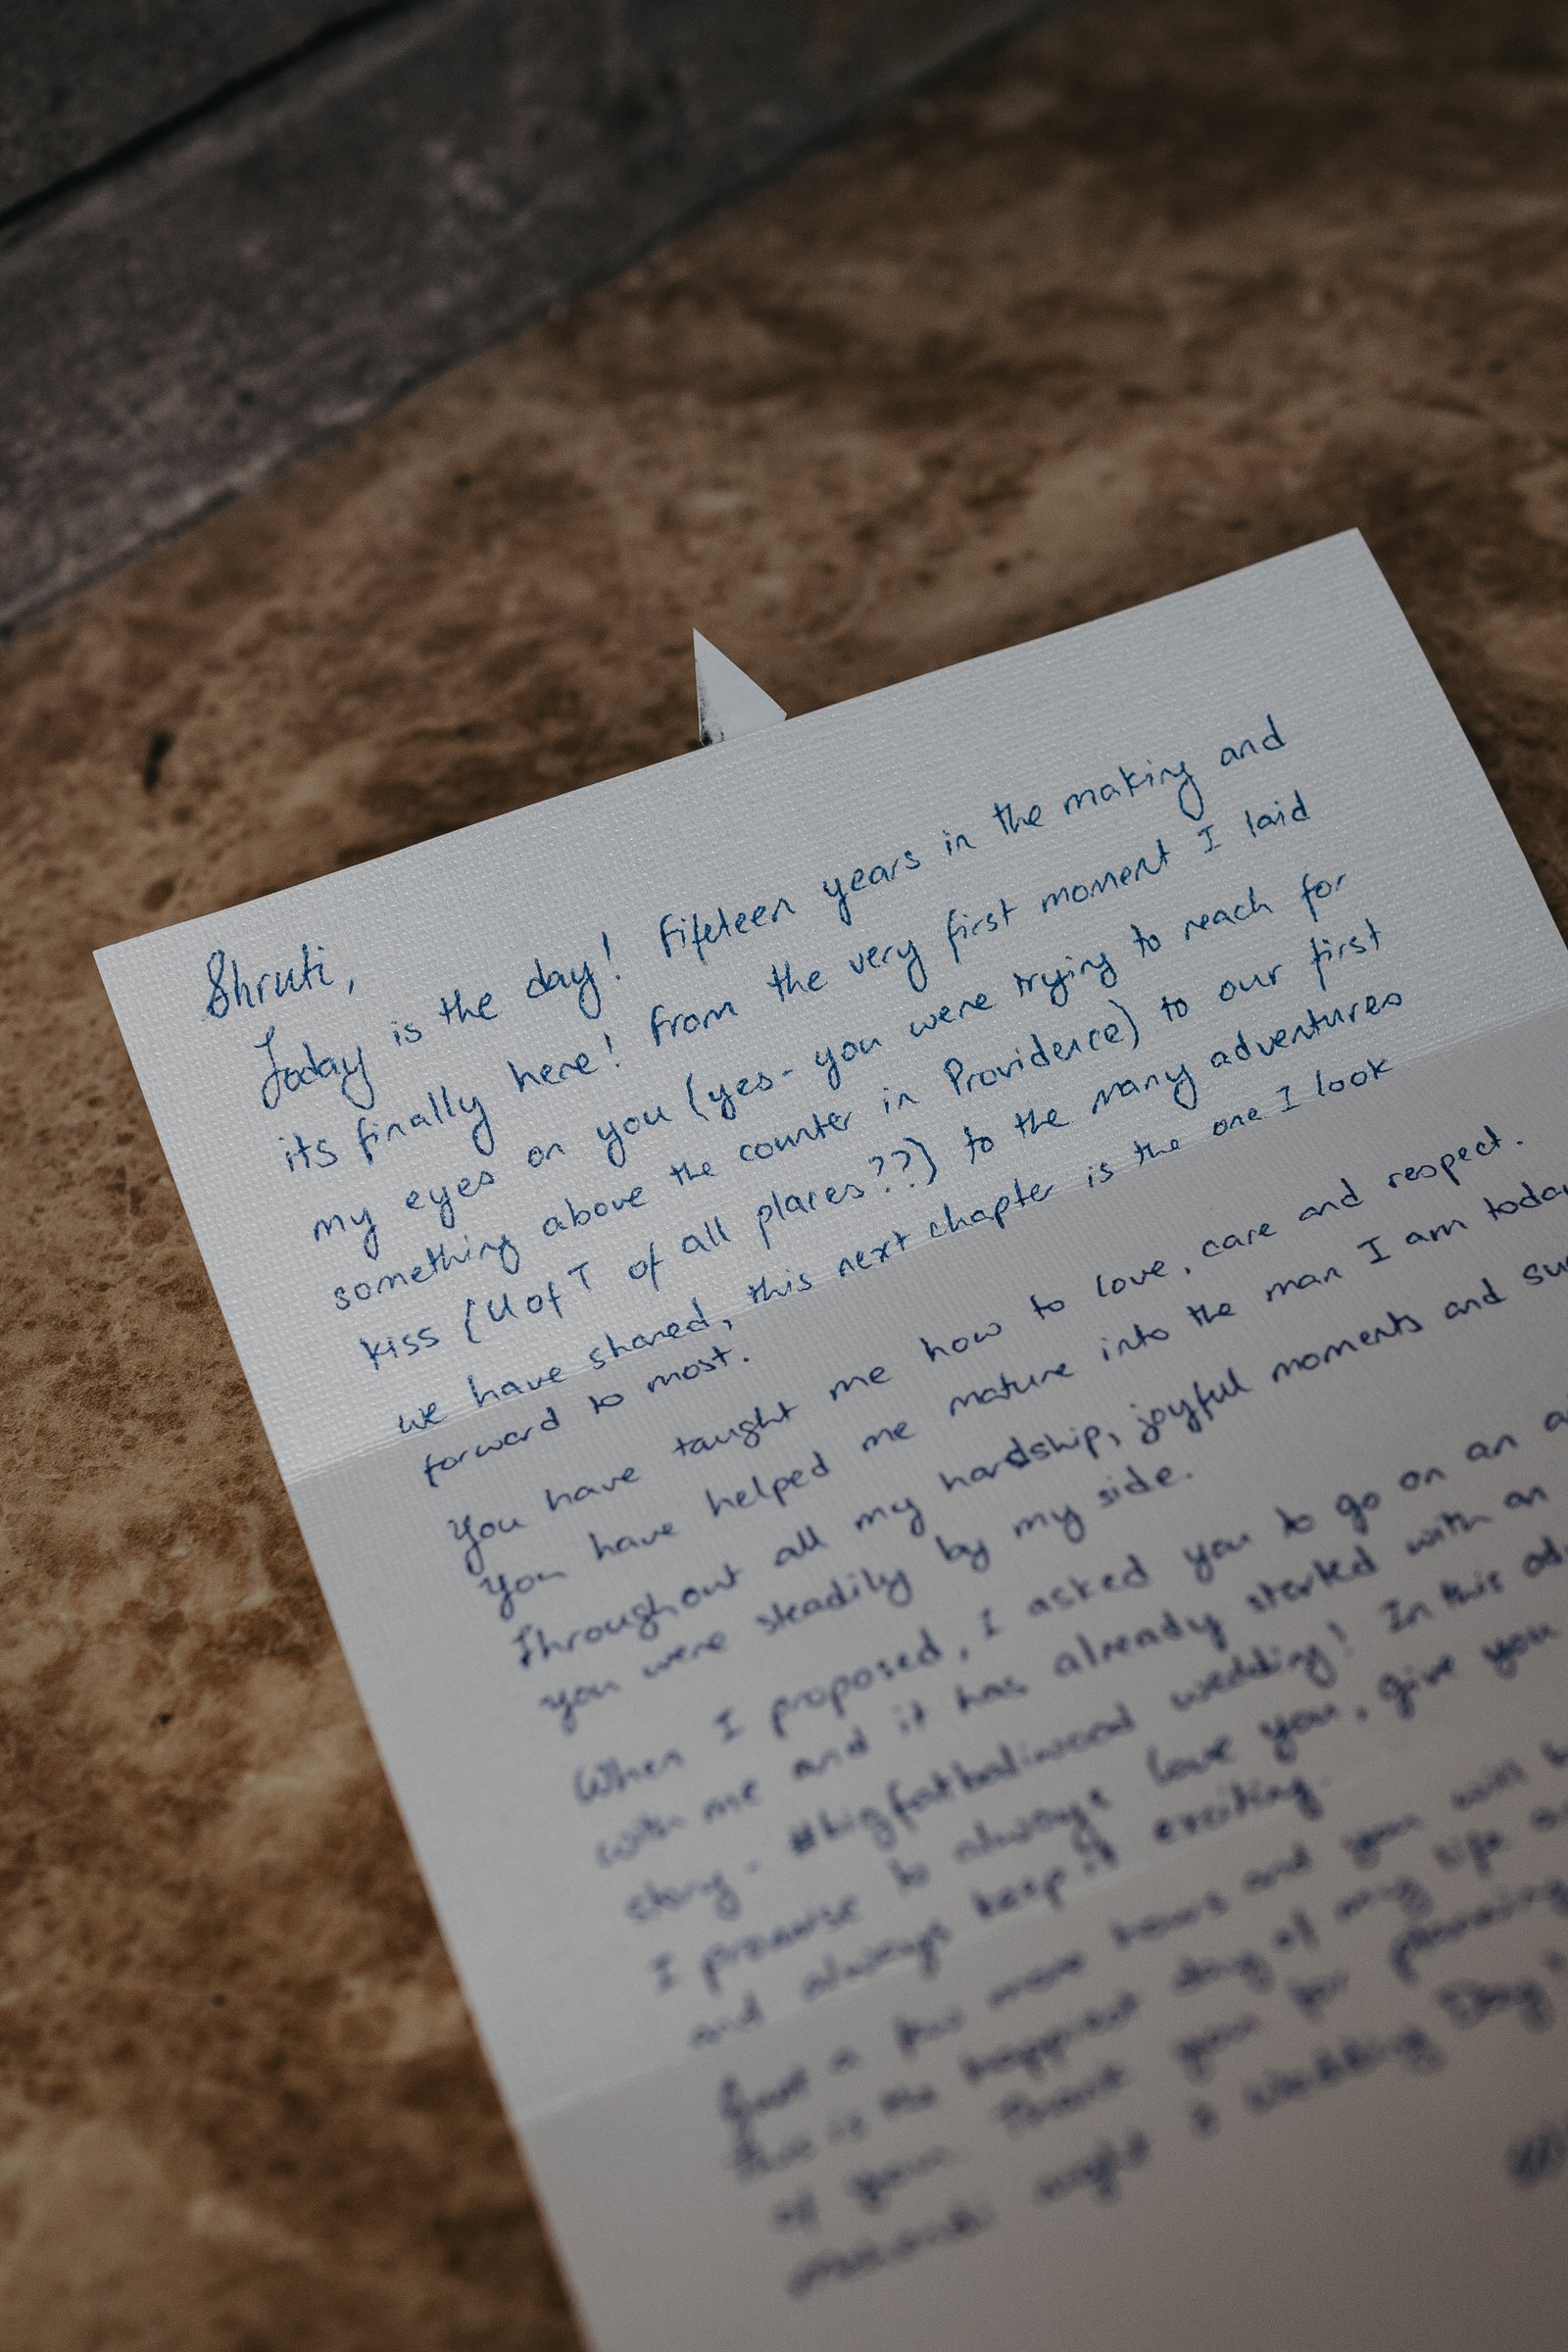 Shruti,
Today is the day! Fifeteen years in the making and
its finally here! From the very first moment I laid
my eyes on you (yes- you were trying to reach for
something above the counter in Providence) to our first
kiss (U of T of all places??) to the many adventures
we have shared, this next chapter is the one I look
forward to most.
You have taught me how to love, care and respect.
You have helped me mature into the man I am today
Throughout all my hardship, joyful moments and
you were steadily by my side.
When I proposed, I asked you to go on an
with me and it has already started with an
- #bigfatbaliwood wedding! In this
I promise to always love you, give you
and always keep it exciting.
Just a few more hours and you will
this is the happiest day of my life
of you. Thank you for planning
night & Wedding Day